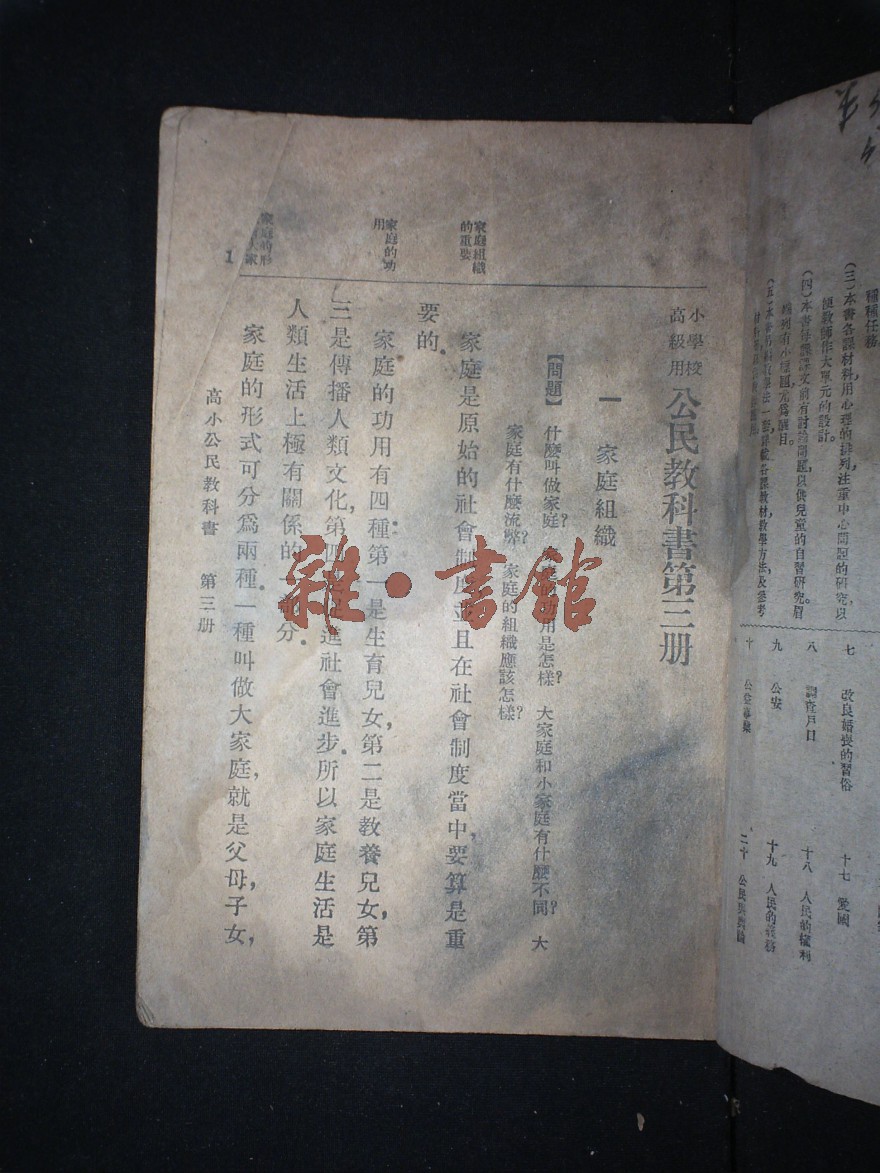 種種任務
(三)本書各課材料用心理的排列注重中心問題的研究,以
便教師作大單元的設計。
(四)本書每課課文前有討論問題,以供兒童的自習研究。眉
端列有小標題,尤爲醒目。
七 改良婚喪的習俗
八 調查戶口
九 公安
十 公益事業
十七 愛國
十八 人民的權利
十九 人民的義務
二十 公民與輿論
小學校
高級用
公民教科書第三册
一 家庭組織
【問題】 什麼叫做家庭? 家庭的功用是怎樣? 大家庭和小家庭有什麼不同? 大
家庭有什麼流弊? 家庭的組織應該怎樣?
家庭組織
的重要
家庭是原始的社會制度,並且在社會制度當中,要算是重
要的。
家庭的功
用
家庭的功用有四種:第一是生育兒女,第二是教養兒女,第
三是傳播人類文化,第四是促進社會進步。所以家庭生活是
人類生活上極有關係的一部分。
家庭的形
家庭的形式可分爲兩種。一種叫做大家庭,就是父母,子女,
高小公民教科書 第三册
1
雜·書館